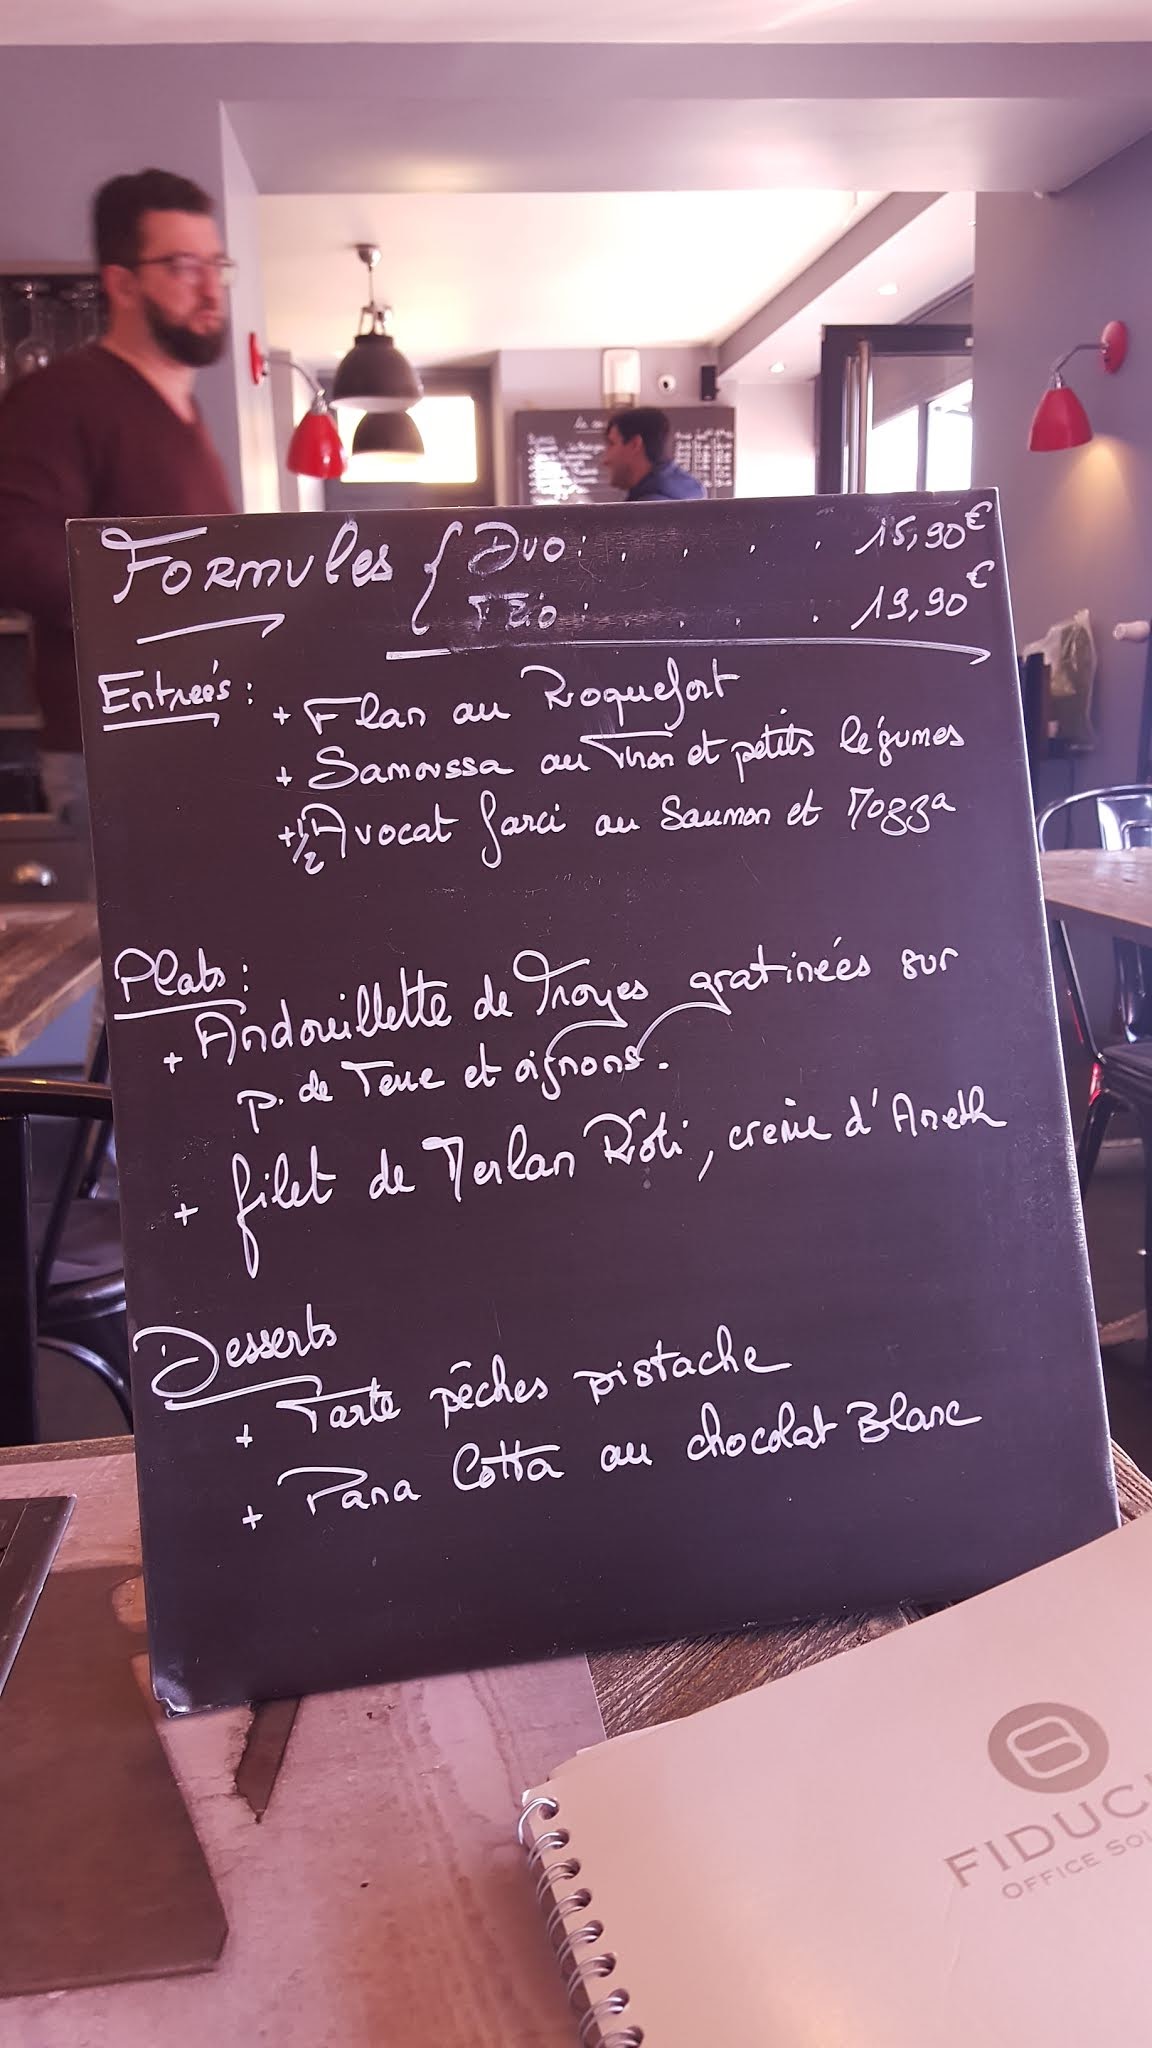 Formules { Duo: . . . . 15,90€
Trio: . . . 19,90€
Entreés:
+ Flan au Roquefort
+ Samoussa au Thon et petits légumes
+ 1/2 Avocat farci au Saumon et Mozza
Plats:
+ Andouillette de Troyes gratinées sur
p. de Terre et oignons.
+ filet de Merlan Rôti, crème d'Aneth
Desserts
+ Tarte pêches pistache
+ Pana Cotta au chocolat Blanc
FIDUC
OFFICE SOL